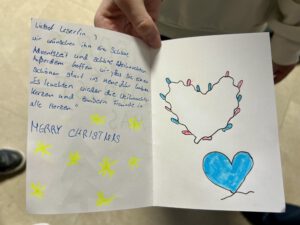 Liebe/r Leser/in,
wir wünschen ihn eine Schöne
Adventszeit und schöne Weihnachten
Außerdem hoffen wir das Sie einen
schönen start ins neue Jahr haben.
Es leuchten wieder die Weihnachts-
kerzen und zaubern Freude in
alle Herzen"
MERRY CHRISTMAS